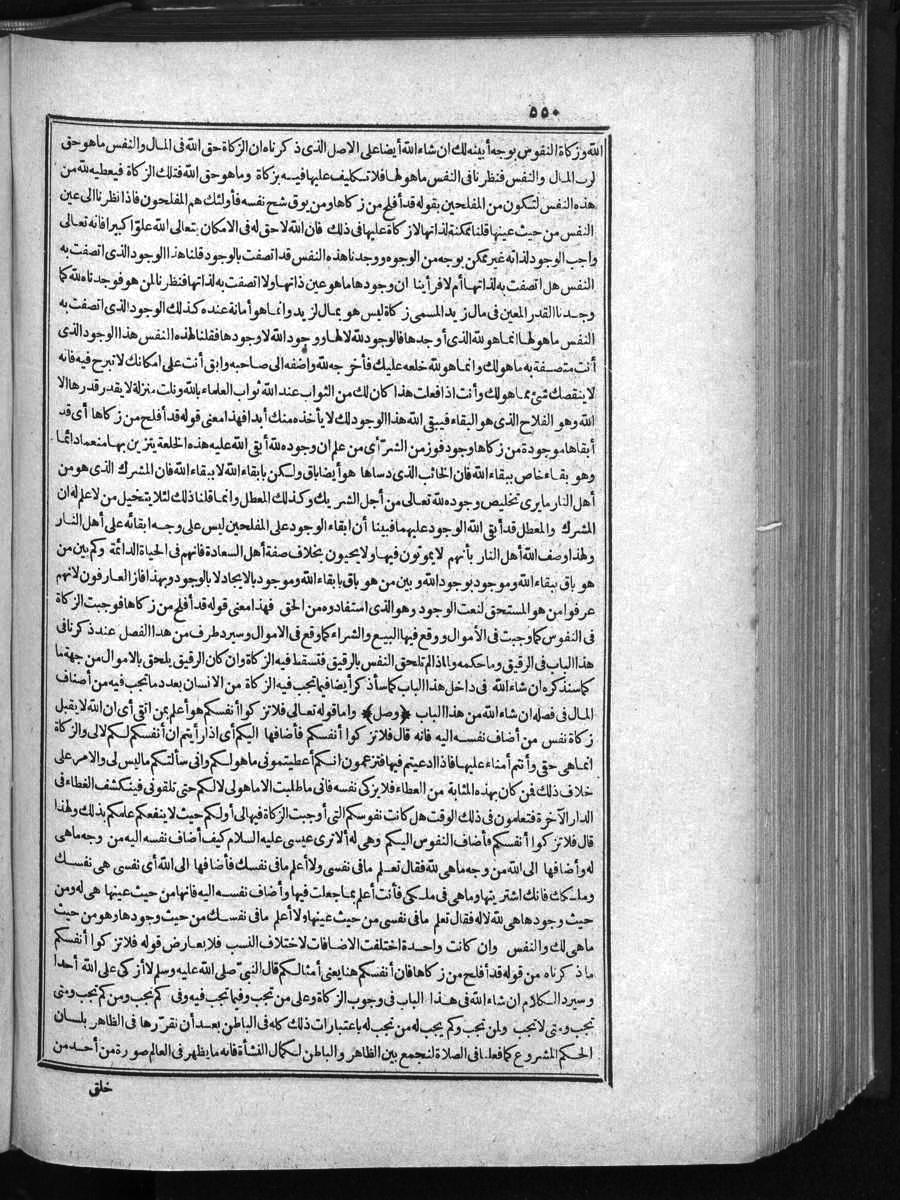 ٥٥٠
الله وزكاة النفوس بوجه أبينه لك ان شاء الله أيضا على الاصل الذى ذكرناه ان الزكاة حق الله فى المال والنفس ما هو حق
لرب المال والنفس فنظرنا فى النفس ما هو لها فلا تكليف عليها فيه بزكاة وما هو حق الله فتلك الزكاة فيعطيه لله من
هذه النفس لتكون من المفلحين بقوله قد أفلح من زكاها ومن يوق شح نفسه فأولئك هم المفلحون فاذا نظرنا الى عين
النفس من حيث عينها قلنا ممكنة لذاتها لا زكاة عليها فى ذلك فان الله لا حق له فى الامكان يتعالى الله علوّا كبيرا فانه تعالى
واجب الوجود لذاته غير ممكن بوجه من الوجوه ووجدنا هذه النفس قد اتصفت بالوجود قلنا هذا الوجود الذى اتصفت به
النفس هل اتصفت به لذاتها أم لا فرأينا ان وجودها ما هو عين ذاتها ولا اتصفت به لذاتها فنظرنا لمن هو فوجدناه لله كما
وجدنا القدر المعين فى مال زيد المسمى زكاة ليس هو بمال لزيد وانما هو أمانة عنده كذلك الوجود الذى اتصفت به
النفس ما هو لها انما هو لله الذى أوجدها فالوجود لله لا لها ووجود الله لا وجودها فقلنا لهذه النفس هذا الوجود الذى
أنت متصفة به ما هو لك وانما هو لله خلعه عليك فأخرجه لله واضفه الى صاحبه وابق أنت على امكانك لا تبرح فيه فانه
لا ينقصك شئ مما هو لك وأنت اذا فعلت هذا كان لك من الثواب عند الله ثواب العلماء بالله ونلت منزلة لا يقدر قدرها الا
الله وهو الفلاح الذى هو البقاء فيبقى الله هذا الوجود لك لا يأخذه منك أبدا فهذا معنى قوله قد أفلح من زكاها أى قد
أبقاها موجودة من زكاها وجود فوز من الشرّ أى من علم ان وجوده لله أبقى الله عليه هذه الخلعة يتزين بها منعما دائما
وهو بقاء خاص ببقاء الله فان الخائب الذى دساها هو أيضا باق ولكن بابقاء الله لا ببقاء الله فان المشرك الذى هو من
أهل النار ما يرى تخليص وجوده لله تعالى من أجل الشريك وكذلك المعطل وانما قلنا ذلك لئلا يتخيل من لا علم له ان
المشرك والمعطل قد أبقى الله الوجود عليهما فبينا أن ابقاء الوجود على المفلحين ليس على وجه ابقائه على أهل النار
ولهذا وصف الله أهل النار بأنهم لا يموتون فيها ولا يحيون بخلاف صفة أهل السعادة فانهم فى الحياة الدائمة وكم بين من
هو باق ببقاء الله وموجود بوجود الله وبين من هو باق بابقاء الله وموجود بالايجاد لا بالوجود وبهذا فاز العارفون لانهم
عرفوا من هو المستحق لنعت الوجود وهو الذى استفادوه من الحق فهذا معنى قوله قد أفلح من زكاها فوجبت الزكاة
فى النفوس كما وجبت فى الأموال ووقع فيها البيع والشراء كما وقع فى الاموال وسيرد طرف من هذا الفصل عند ذكرنا فى
هذا الباب فى الرقيق وما حكمه ولماذا لم تلحق النفس بالرقيق فتسقط فيه الزكاة وان كان الرقيق يلحق بالاموال من جهة ما
كما سنذكره ان شاء الله فى داخل هذا الباب كما سأذكر أيضا فيما تجب فيه الزكاة من الانسان بعدد ما تجب فيه من أصناف
المال فى فصله ان شاء الله من هذا الباب ﴿وصل﴾ واما قوله تعالى فلا تزكوا أنفسكم هو أعلم بمن اتقى أى ان الله لا يقبل
زكاة نفس من أضاف نفسه اليه فانه قال فلا تزكوا أنفسكم فأضافها اليكم أى اذا رأيتم ان أنفسكم لكم لا لى والزكاة
انما هى حقى وأنتم أمناء عليها فاذا ادعيتم فيها فتزعمون انكم أعطيتمونى ما هو لكم وانى سألتكم ما ليس لى والامر على
خلاف ذلك فمن كان بهذه المثابة من العطاء فلا يزكى نفسه فانى ما طلبت الا ما هو لى لا لكم حتى تلقونى فينكشف الغطاء فى
الدار الآخرة فتعلمون فى ذلك الوقت هل كانت نفوسكم التى أوجبت الزكاة فيها لى أو لكم حيث لا ينفعكم علمكم بذلك ولهذا
قال فلا تزكوا أنفسكم فأضاف النفوس اليكم وهى له ألا ترى عيسى عليه السلام كيف أضاف نفسه اليه من وجه ما هى
له وأضافها الى الله من وجه ما هى لله فقال تعلم ما فى نفسى ولا أعلم ما فى نفسك فأضافها الى الله أى نفسى هى نفسك
وملكك فانك اشتريتها وما هى فى ملكى فأنت أعلم بما جعلت فيها وأضاف نفسه اليه فانها من حيث عينها هى له ومن
حيث وجودها هى لله لا له فقال تعلم ما فى نفسى من حيث عينها ولا أعلم ما فى نفسك من حيث وجودها وهو من حيث
ما هى لك والنفس وان كانت واحدة اختلفت الاضافات لاختلاف النسب فلا يعارض قوله فلا تزكوا أنفسكم
ما ذكرناه من قوله قد أفلح من زكاها فان أنفسكم هنا يعنى أمثالكم قال النبىّ صلى الله عليه وسلم لا أزكى على الله أحدا
وسيرد الكلام ان شاء الله فى هذا الباب فى وجوب الزكاة وعلى من تجب وفيما تجب فيه وفى كم تجب ومن كم تجب ومتى
تجب ومتى لا تجب ولمن تجب وكم يجب له من تجب له باعتبارات ذلك كله فى الباطن بعد أن نقرّرها فى الظاهر بلسان
الحكم المشروع كما فعلنا فى الصلاة لنجمع بين الظاهر والباطن لكمال النشأة فانه ما يظهر فى العالم صورة من أحد من
خلق